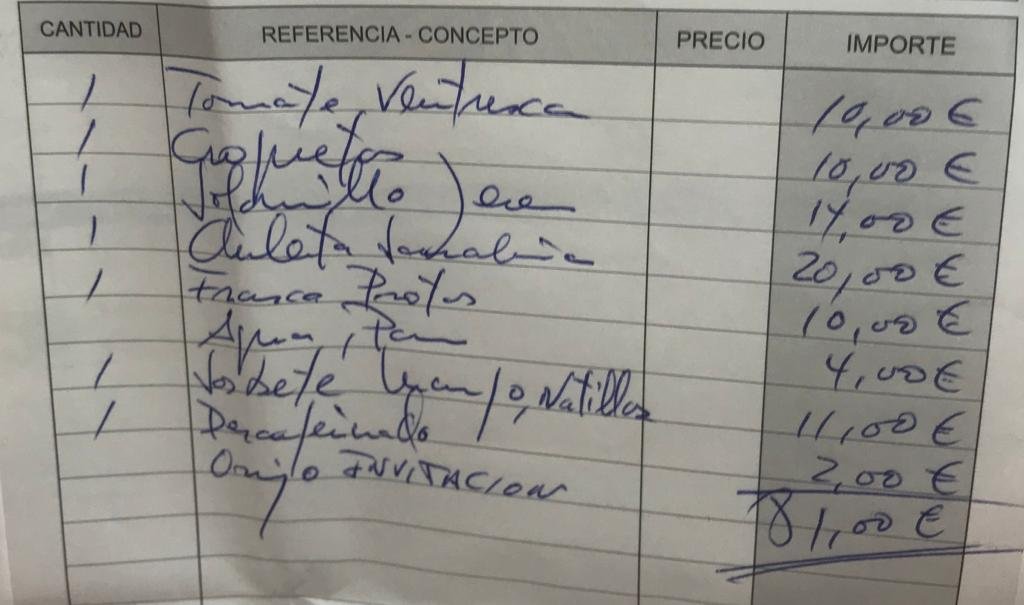 CANTIDAD REFERENCIA - CONCEPTO PRECIO IMPORTE
1 Tomate Ventresca 10,00 €
1 Croquetas 10,00 €
1 Solomillo 14,00 €
1 Chuleta 20,00 €
1 Frasca 10,00 €
Agua, Pan 4,00 €
1 Sorbete Natillas 11,00 €
1 Descafeinado 2,00 €
Orujo INVITACION
81,00 €